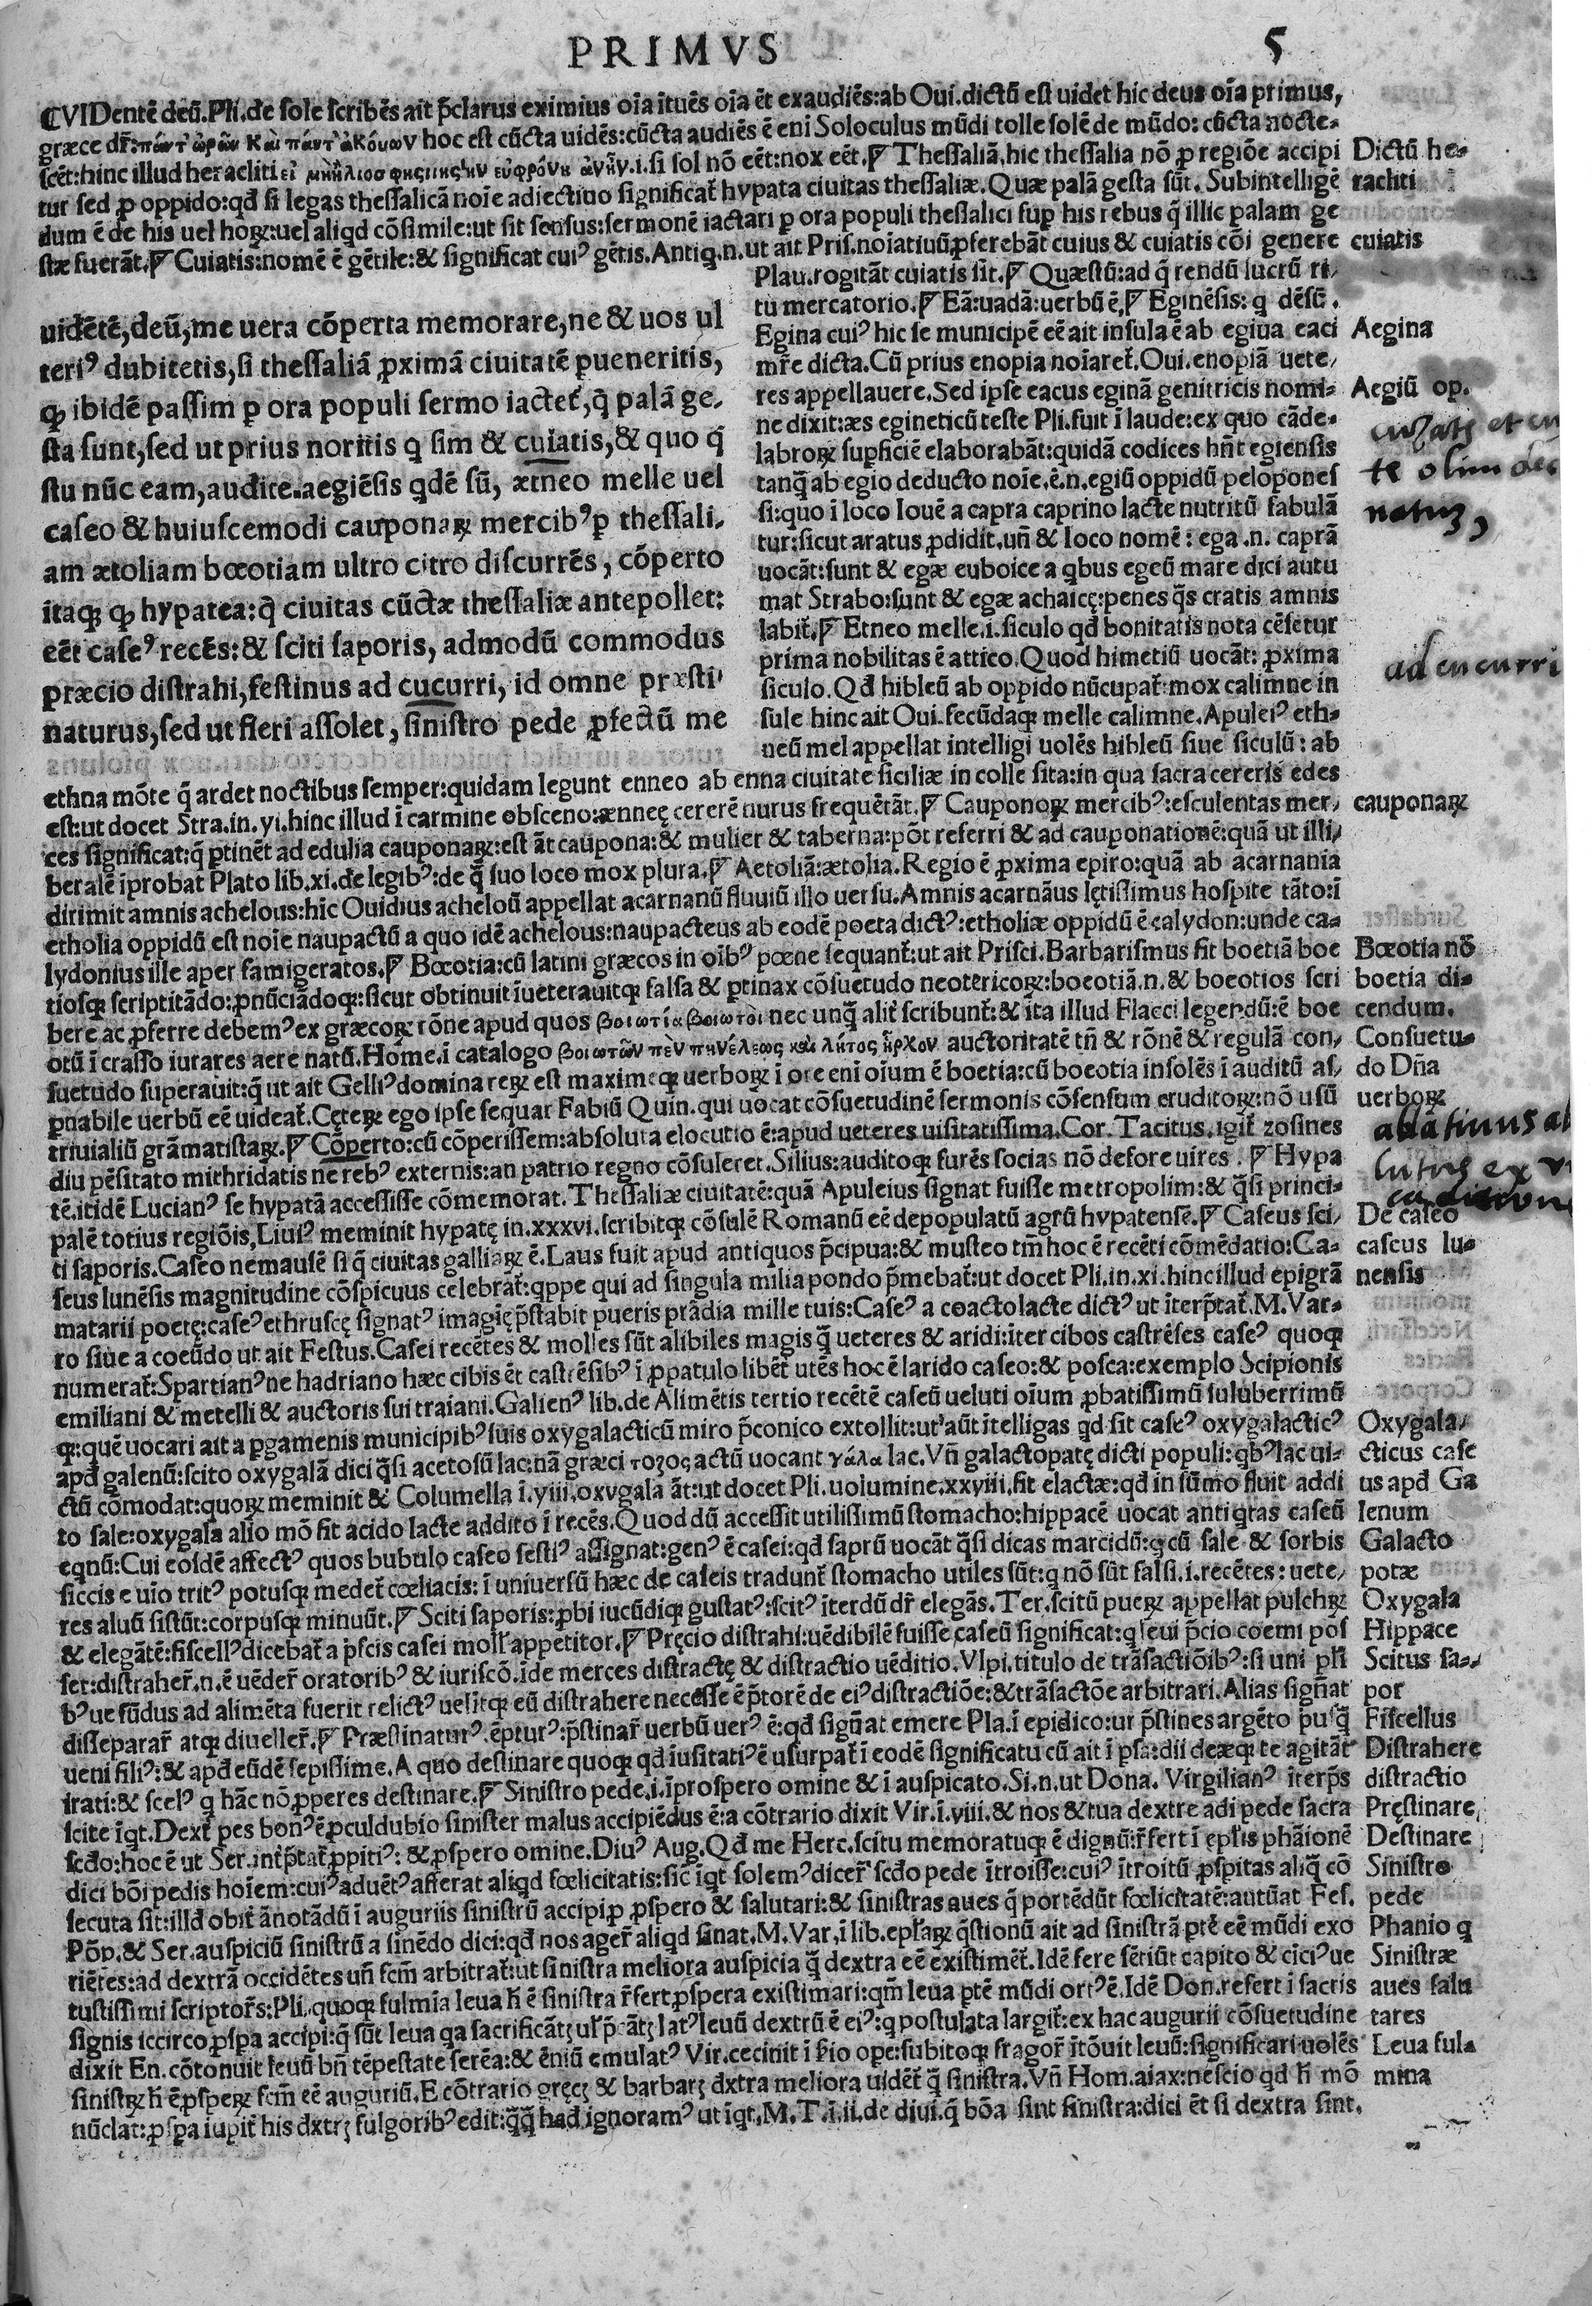 PRIMVS
5
CVIDentē deū.Pli.de sole scribēs ait p̄clarus eximius oīa ītuēs oīa ēt exaudiēs:ab Oui.dictū est uidet hic deus oīa primus,
græce dr̄: hoc est cūcta uidēs:cūcta audiēs ē eni Soloculus mūdi tolle solē de mūdo: cūcta nocte-
scēt:hinc illud heracliti .i.si sol nō eēt:nox eēt.¶ Thessaliā,hic thessalia nō ꝓ regiōe accipi
tur sed ꝓ oppido:qđ si legas thessalicā noīe adiectiuo significat̄ hypata ciuitas thessaliæ.Quæ palā gesta sūt. Subintelligē
dum ē de his uel hoꝝ:uel aliqd cōsimile:ut sit sensus:sermonē iactari ꝑ ora populi thessalici suꝑ his rebus q̄ illic palam ge
stæ fuerāt.¶ Cuiatis:nomē ē gētile:& significat cuiꝰ gētis.Antiq.n.ut ait Pris.noīatiuū ꝓferebāt cuius & cuiatis cōi genere
Plau.rogitāt cuiatis sit.¶ Quæstū:ad q̄rendū lucrū ri-
tu mercatorio.¶ Eā:uadā:uerbū ē,¶ Eginēsis: q dēsū.
Egina cuiꝰ hic se municipē eē ait insula ē ab egina eaci
mr̄e dicta.Cū prius enopia noīaret̄.Oui.enopiā uete-
res appellauere.Sed ipse eacus eginā genitricis nomi-
ne dixit:æs egineticū teste Pli.fuit ī laude:ex quo cāde-
labroꝝ suꝑficiē elaborabāt:quidā codices hn̄t egiensis
tanq̄ ab egio deducto noīe.ē.n.egiū oppidū pelopones
si:quo ī loco Iouē a capra caprino lacte nutritū fabulā
tur:sicut aratus ꝓdidit.un̄ & loco nomē: ega.n. caprā
uocāt:sunt & egæ euboice a qbus egeū mare dici autu
mat Strabo:sunt & egæ achaicę:penes q̄s cratis amnis
labit̄.¶ Etneo melle.i.siculo qđ bonitatis nota cēsetur
prima nobilitas ē attico.Quod himetiū uocāt: ꝓxima
siculo.Qđ hibleū ab oppido nūcupat̄:mox calimne in
sule hinc ait Oui.fecūdaqꝫ melle calimne.Apuleiꝰ eth-
neū mel appellat intelligi uolēs hibleū siue siculū: ab
uidētē,deū,me uera cōperta memorare,ne & uos ul
teriꝰ dubitetis,si thessaliā ꝓximā ciuitatē ꝑueneritis,
qꝫ ibidē passim ꝑ ora populi sermo iactet̄,q̄ palā ge-
sta sunt,sed ut prius noritis q sim & cuiatis,& quo q̄
stu nūc eam,audite.aegiēsis qdē sū, ætneo melle uel
caseo & huiuscemodi cauponaꝝ mercibꝰ ꝑ thessali-
am ætoliam bœotiam ultro citro discurrēs, cōperto
itaqꝫ qꝫ hypatea:q̄ ciuitas cūctæ thessaliæ antepollet:
eēt caseꝰ recēs:& sciti saporis, admodū commodus
præcio distrahi,festinus ad cucurri, id omne præsti-
naturus,sed ut fieri assolet, sinistro pede ꝓfectū me
ethna mōte q̄ ardet noctibus semper:quidam legunt enneo ab enna ciuitate siciliæ in colle sita:in qua sacra cereris edes
est:ut docet Stra.in.yi.hinc illud ī carmine obsceno:ænneę cererē nurus frequētāt.¶ Cauponoꝝ mercibꝰ:esculentas mer-
ces significat:q̄ ꝑtinēt ad edulia cauponaꝝ:est āt caupona:& mulier & taberna:pōt referri & ad cauponationē:quā ut illi-
beralē īprobat Plato lib.xi.de legibꝰ:de q̄ suo loco mox plura.¶ Aetoliā:ætolia.Regio ē ꝓxima epiro:quā ab acarnania
dirimit amnis achelous:hīc Ouidius acheloū appellat acarnanū fluuiū illo uersu.Amnis acarnāus lętissimus hospite tāto:ī
etholia oppidū est noīe naupactū a quo idē achelous:naupacteus ab eodē poeta dictꝰ:etholiæ oppidū ē calydon:unde ca-
lydonius ille aper famigeratos.¶ Bœotia:cū latini græcos in oībꝰ pœne sequant̄:ut ait Prisci.Barbarismus fit boetiā boe
tiosqꝫ scriptitādo:ꝓnūciādoqꝫ:sicut obtinuit īueterauitqꝫ falsa & ꝑtinax cōsuetudo neotericoꝝ:boeotiā.n.& boeotios scri
bere ac ꝓferre debemꝰ ex græcoꝝ rōne apud quos βοιωτία βοιωτοὶ nec unq̄ alit̄ scribunt̄:& īta illud Flacci legendū:ē boe
otū ī crasso iurares aere natū.Home.ī catalogo βοιωτῶν auctoritatē tn̄ & rōnē & regulā con-
suetudo superauit:q̄ ut ait Gelliꝰ domina reꝝ est maximeqꝫ uerboꝝ ī ore eni oīum ē boetia:cū boeotia insolēs ī auditū as-
pnabile uerbū eē uideat̄.Cęteꝝ ego ipse sequar Fabiū Quin.qui uocat cōsuetudinē sermonis cōsensum eruditoꝝ:nō usū
triuialiū grāmatistaꝝ.¶ Cōperto:cū cōperissem:absoluta elocutio ē:apud ueteres uisitatissima.Cor.Tacitus.igit̄ zosines
diu pēsitato mithridatis ne rebꝰ externis:an patrio regno cōsuleret.Silius:auditoqꝫ furēs socias nō defore uires. ¶ Hypa
tē.itidē Lucianꝰ se hypatā accessisse cōmemorat.Thessaliæ ciuitatē:quā Apuleius signat fuisse metropolim:& q̄si princi-
palē totius regiōis,Liuiꝰ meminit hypatę in.xxxvi.scribitqꝫ cōsulē Romanū eē depopulatū agrū hypatensē.¶ Caseus sci-
ti saporis.Caseo nemausē si q̄ ciuitas galliaꝝ ē.Laus fuit apud antiquos p̄cipua:& musteo tm̄ hoc ē recēti cōmēdatio:Ca-
seus lunēsis magnitudine cōspicuus celebrat̄:qppe qui ad singula milia pondo p̄mebat̄:ut docet Pli.in.xi.hinc illud epigrā
matarii poetę:caseꝰ ethruscę signatꝰ imagię p̄stabit pueris prādia mille tuis:Caseꝰ a coacto lacte dictꝰ ut īterp̄tat̄.M.Var-
ro siue a coeūdo ut ait Festus.Casei recētes & molles sūt alibiles magis q̄ ueteres & aridi:īter cibos castrēses caseꝰ quoqꝫ
numerat̄:Spartianꝰ ne hadriano hæc cibis ēt castrēsibꝰ ī ꝓpatulo libēt̄ utēs hoc ē larido caseo:& posca:exemplo Scipionis
emiliani & metelli & auctoris sui traiani.Galienꝰ lib.de Alimētis tertio recētē caseū ueluti oīum ꝓbatissimū saluberrimū
qꝫ:quē uocari ait a ꝑgamenis municipibꝰ suis oxygalacticū miro p̄conico extollit:ut aūt ītelligas qđ sit caseꝰ oxygalacticꝰ
apđ galenū:scito oxygalā dici q̄si acetosū lac:nā græci τοζος actū uocant γάλα lac.Vn̄ galactopatę dicti populi:qbꝰ lac ui-
ctū cōmodat:quoꝝ meminit & Columella ī.yiii.oxygala āt:ut docet Pli.uolumine.xxyiii.fit elactæ:qđ in sūmo fluit addi
to sale:oxygala alio mō fit acido lacte addito ī recēs.Quod dū accessit utilissimū stomacho:hippacē uocat antiqtas caseū
eqnū:Cui eosdē affectꝰ quos bubulo caseo sestiꝰ assignat:genꝰ ē casei:qđ saprū uocāt q̄si dicas marcidū:q cū sale & sorbis
siccis e uīo tritꝰ potusqꝫ medet̄ cœliacis: ī universū hæc de caseis tradunt̄ stomacho utiles sūt:q nō sūt salsi.i.recētes: uete-
res aluū sistūt:corpusqꝫ minuūt.¶ Sciti saporis:ꝓbi iucūdiqꝫ gustatꝰ:scitꝰ īterdū dr̄ elegās.Ter.scitū pueꝝ appellat pulchꝝ
& elegātē:fiscellꝰ dicebat̄ a p̄scis casei moll' appetitor.¶ Pręcio distrahi:uēdibilē fuisse caseū significat:q leui p̄cio coemi pos
set:distraher̄.n.ē uēder̄ oratoribꝰ & iuriscō.īde merces distractę & distractio uēditio.Vlpi.titulo de trāsactiōibꝰ:si uni pl'i
bꝰ ue fūdus ad alimēta fuerit relictꝰ uelitqꝫ eū distrahere necesse ē p̄torē de eiꝰ distractiōe:& trāsactōe arbitrari.Alias sign̄at
disseparar̄ atqꝫ diueller̄.¶ Præstinaturꝰ.ēpturꝰ:p̄stinar̄ uerbū uerꝰ ē:qđ sign̄at emere Pla.ī epidico:ut p̄stines argēto p̄usq̄
ueni filiꝰ:& apđ eūdē sepissime.A quo destinare quoqꝫ qđ īusitatiꝰ ē usurpat̄ ī eodē significatu cū ait ī psa:dii deæqꝫ te agitāt
irati:& scelꝰ q hāc nō ꝓperes destinare.¶ Sinistro pede.i.īprospero omine & ī auspicato.Si.n.ut Dona. Virgilianꝰ īterp̄s
scite īqt.Dext̄ pes bonꝰ ē ꝓculdubio sinister malus accipiēdus ē:a cōtrario dixit Vir.ī.yiii.& nos & tua dextre adi pede sacra
scđo:hoc ē ut Ser.int̄p̄tat̄ ꝓpitiꝰ: & ꝓspero omine.Diuꝰ Aug.Qđ me Herc.scitu memoratuqꝫ ē dignū:r̄fert ī epl'is phāionē
dici bōi pedis hoīem:cuiꝰ aduētꝰ afferat aliqd fœlicitatis:sic̄ īqt solemꝰ dicer̄ scđo pede ītroisse:cuiꝰ ītroitū ꝓspitas aliq̄ cō
secuta sit:illđ obit̄ ānotādū ī auguriis sinistrū accipi ꝓ ꝓspero & salutari:& sinistras aues q̄ portēdūt fœlicitatē:autūat Fes.
Pōp.& Ser.auspiciū sinistrū a sinēdo dici:qđ nos ager̄ aliqd sinat.M.Var,ī lib.epl'aꝝ q̄stionū ait ad sinistrā ꝑtē eē mūdi exo
riētes:ad dextrā occidētes un̄ fcm̄ arbitrat̄:ut sinistra meliora auspicia q̄ dextra eē existimēt̄.Idē fere sētiūt capito & cīciꝰ ue
tustissimi scriptor̄s:Pli.quoqꝫ fulmīa leua h̄ ē sinistra r̄fert ꝓspera existimari:qm̄ leua ꝑtē mūdi ortꝰ ē.Idē Don.refert ī sacris
signis iccirco ꝓspa accipi:q̄ sūt leua qa sacrificātꝫ ul' p̄cātꝫ latꝰ leuū dextrū ē eiꝰ:q postulata largit̄:ex hac augurii cōsuetudine
dixit En.cōtonuit leuū bn̄ tēpestate serēa:& ēniū emulatꝰ Vir.cecinit ī h̄io ope:subitoqꝫ fragor̄ ītōuit leuū:significari uolēs
sinistꝝ h̄ ē ꝓspeꝝ fcm̄ eē auguriū.E cōtrario gręcꝫ & barbarꝫ dxtra meliora uidēt̄ q̄ sinistra.Vn̄ Hom.aiax:nescio qđ h̄ mō
nūclat:ꝓspa iupit̄ his dxtrꝫ fulgoribꝰ edit:q̄q̄ hađ ignoramꝰ ut īqt.M.T.ī.ii.de diui.q̄ bōa sint sinistra:dici ēt si dextra sint.
Dictū he-
racliti
cuiatis
Aegina
Aegiū op.
te olim
ad cucurri
cauponaꝝ
Bœotia nō
boetia di-
cendum.
Consuetu-
do Dn̄a
uerboꝝ
ablatiuus
De caseo
caseus lu-
nensis
Oxygala-
cticus case
us apđ Ga
lenum
Galacto
potæ
Oxygala
Hippace
Scitus sa-
por
Fiscellus
Distrahere
distractio
Pręstinare
Destinare
Sinistro
pede
Phanio q
Sinistræ
aues salu
tares
Leua ful-
mina